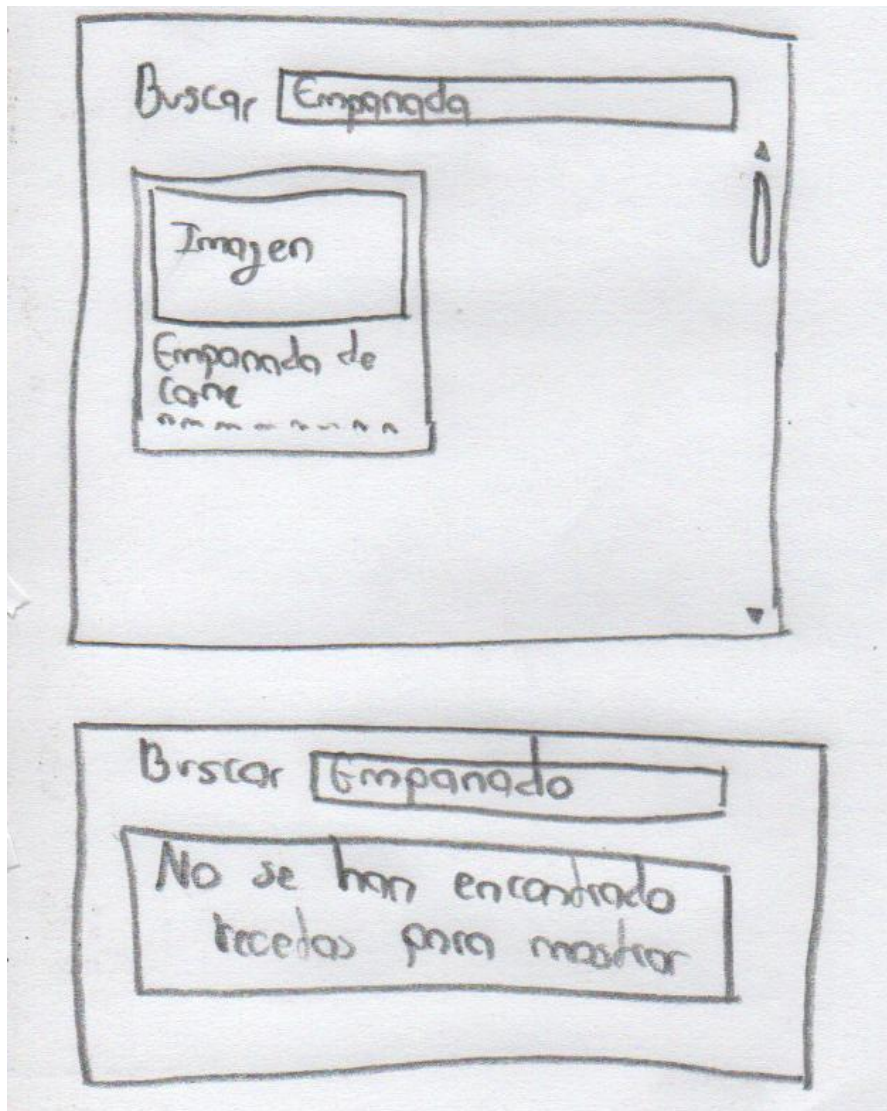 Buscar Empanada
Imagen
Empanada de
carne
Buscar Empanado
No se han encontrado
recetas para mostrar